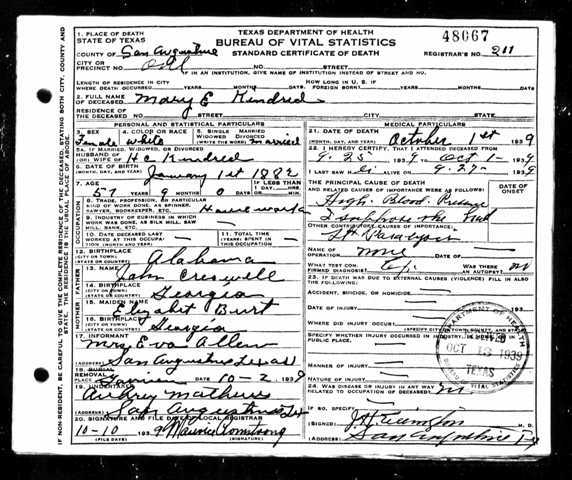 1. PLACE OF DEATH
STATE OF TEXAS
TEXAS DEPARTMENT OF HEALTH
BUREAU OF VITAL STATISTICS
STANDARD CERTIFICATE OF DEATH
48667
COUNTY OF San Augustine
REGISTRAR'S NO. 211
CITY OR
PRECINCT NO.
NO. STREET
IF IN AN INSTITUTION, GIVE NAME OF INSTITUTION INSTEAD OF STREET AND NO.
LENGTH OF RESIDENCE IN CITY
WHERE DEATH OCCURRED YEARS MONTHS DAYS
HOW LONG IN U. S. IF
FOREIGN BORN? YEARS MONTHS DAYS
2. FULL NAME
OF DECEASED Mary E Kindred
RESIDENCE OF
THE DECEASED NO. STREET CITY COUNTY STATE
PERSONAL AND STATISTICAL PARTICULARS
3. SEX
Female
4. COLOR OR RACE
White
5. SINGLE MARRIED
WIDOWED DIVORCED
(WRITE THE WORD) married
5A. IF MARRIED, WIDOWED, OR DIVORCED
HUSBAND OF
(OR) WIFE OF H C Kindred
6. DATE OF BIRTH
(MONTH, DAY, AND YEAR) January 1st 1882
7. AGE
YEARS MONTHS DAYS
57 9 0
IF LESS THAN
1 DAY
HOURS MIN
OCCUPATION
8. TRADE, PROFESSION, OR PARTICULAR
KIND OF WORK DONE, AS SPINNER,
SAWYER, BOOKKEEPER, ETC. House work
9. INDUSTRY OR BUSINESS IN WHICH
WORK WAS DONE, AS SILK MILL, SAW
MILL, BANK, ETC.
10. DATE DECEASED LAST
WORKED AT THIS OCCUPA-
TION (MONTH AND YEAR)
11. TOTAL TIME (YEARS)
SPENT IN THIS OCCUPA-
TION
12. BIRTHPLACE
(CITY OR TOWN)
(STATE OR COUNTRY) Alabama
FATHER
13. NAME John Creswell
14. BIRTHPLACE
(CITY OR TOWN)
(STATE OR COUNTRY) Georgia
MOTHER
15. MAIDEN NAME Elizabet Burt
16. BIRTHPLACE
(CITY OR TOWN)
(STATE OR COUNTRY) Georgia
17. INFORMANT
Mrs Eva Allen
(ADDRESS) San Augustine Texas
18. BURIAL
REMOVAL
10-2 1939
19. UNDERTAKER
Aubrey Mathews
(ADDRESS) San Augustine Tex
20. SIGNATURE AND FILE DATE OF LOCAL REGISTRAR
10-10 1939 Maurice Armstrong
(FILE DATE) (SIGNATURE)
MEDICAL PARTICULARS
21. DATE OF DEATH
(MONTH, DAY, AND YEAR) October 1st 1939
22. I HEREBY CERTIFY, THAT I ATTENDED THE DECEASED FROM
9-25- 1939 TO Oct 1- 1939
I LAST SAW H ALIVE ON 9-27- 1939
THE PRINCIPAL CAUSE OF DEATH AND
RELATED CAUSES OF IMPORTANCE WERE AS FOLLOWS:
DATE OF
ONSET
High Blood Pressure
OTHER CONTRIBUTORY CAUSES OF IMPORTANCE:
NAME OF
OPERATION none
WHAT TEST CON-
FIRMED DIAGNOSIS?
WAS THERE
AN AUTOPSY? no
23. IF DEATH WAS DUE TO EXTERNAL CAUSES (VIOLENCE) FILL IN ALSO
THE FOLLOWING:
ACCIDENT, SUICIDE, OR HOMICIDE
DATE OF INJURY
WHERE DID INJURY OCCUR?
(SPECIFY CITY, TOWN, COUNTY, AND STATE)
SPECIFY WHETHER INJURY OCCURRED IN INDUSTRY, IN HOME, OR IN
PUBLIC PLACE.
MANNER OF INJURY
NATURE OF INJURY
24. WAS DISEASE OR INJURY IN ANY WAY RELATED TO OCCUPATION
OF DECEASED? no
IF SO, SPECIFY
(SIGNED) M. D.
(ADDRESS) San Augustine Tex
DEPARTMENT OF HEALTH
OCT 13 1939
TEXAS
VITAL STATISTICS